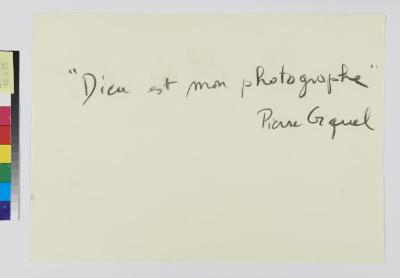 "Dieu est mon photographe"
Pierre Giquel